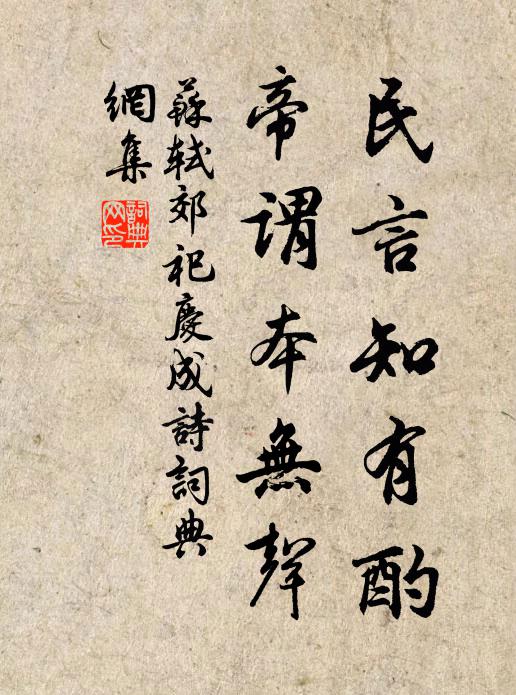 民言知有酌
帝謂本無聲
蘇軾郊祀慶成詩詞典
網集
詞典
网印